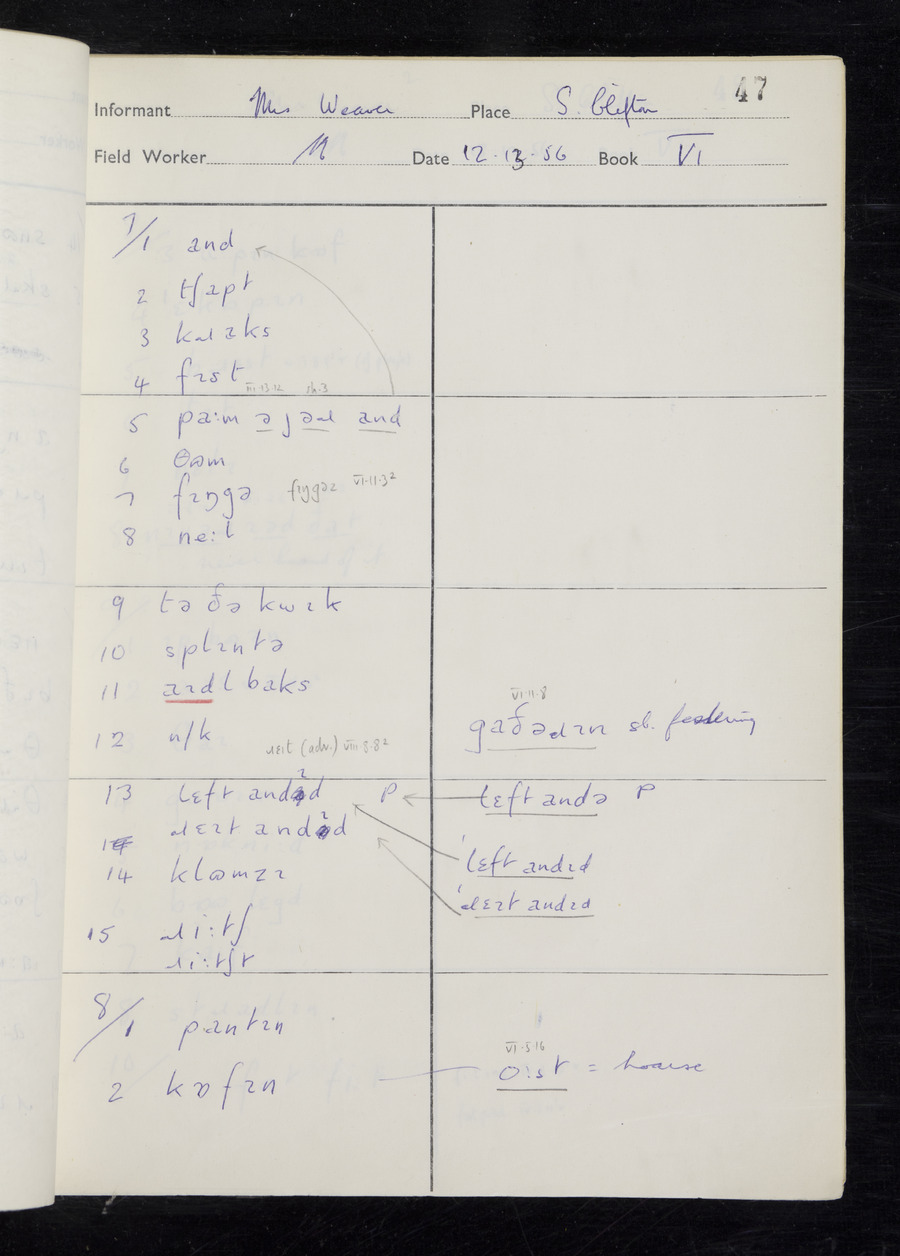 47
Informant Mrs Weaver Place S. Clifton
Field Worker M Date 12·12·56 Book VI
7/1 and
2 tʃapt
3 knɹaks
4 fɪst
III·13·12
5 pa:m ə jəɹ and
6 θɷm
7 fɪŋgə fɪŋgəz VI·11·3²
8 ne:l
9 tə ðə kwɪk
10 splɪntə
11 aɪdl baks
VI·11·8
12 n/k gaðəɹɪn sb. festering
ɹɛɪt (adv.) VIII·8·8²
13 lɛft andɪd P lɛft andə P
ɹɛɪt andɪd
ˈlɛft andɪd
14 klɷmzɪ
ˈɹɛɪt andɪd
15 ɹi:tʃ
ɹi:tʃt
8/1 pantɪn
VI·5·16
2 kɒfɪn o:st = hoarse